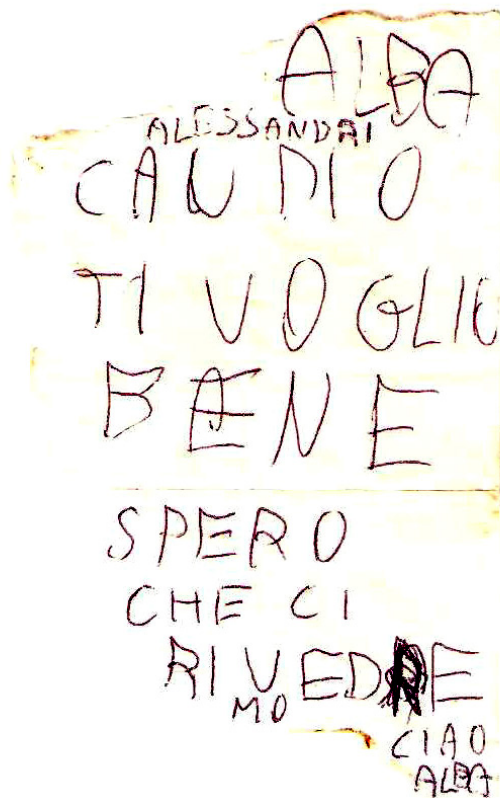 ALBA
ALESSANDRI
CAUDIO
TI VOGLIO
BENE
SPERO
CHE CI
RIVEDRE
MO
CIAO
ALBA